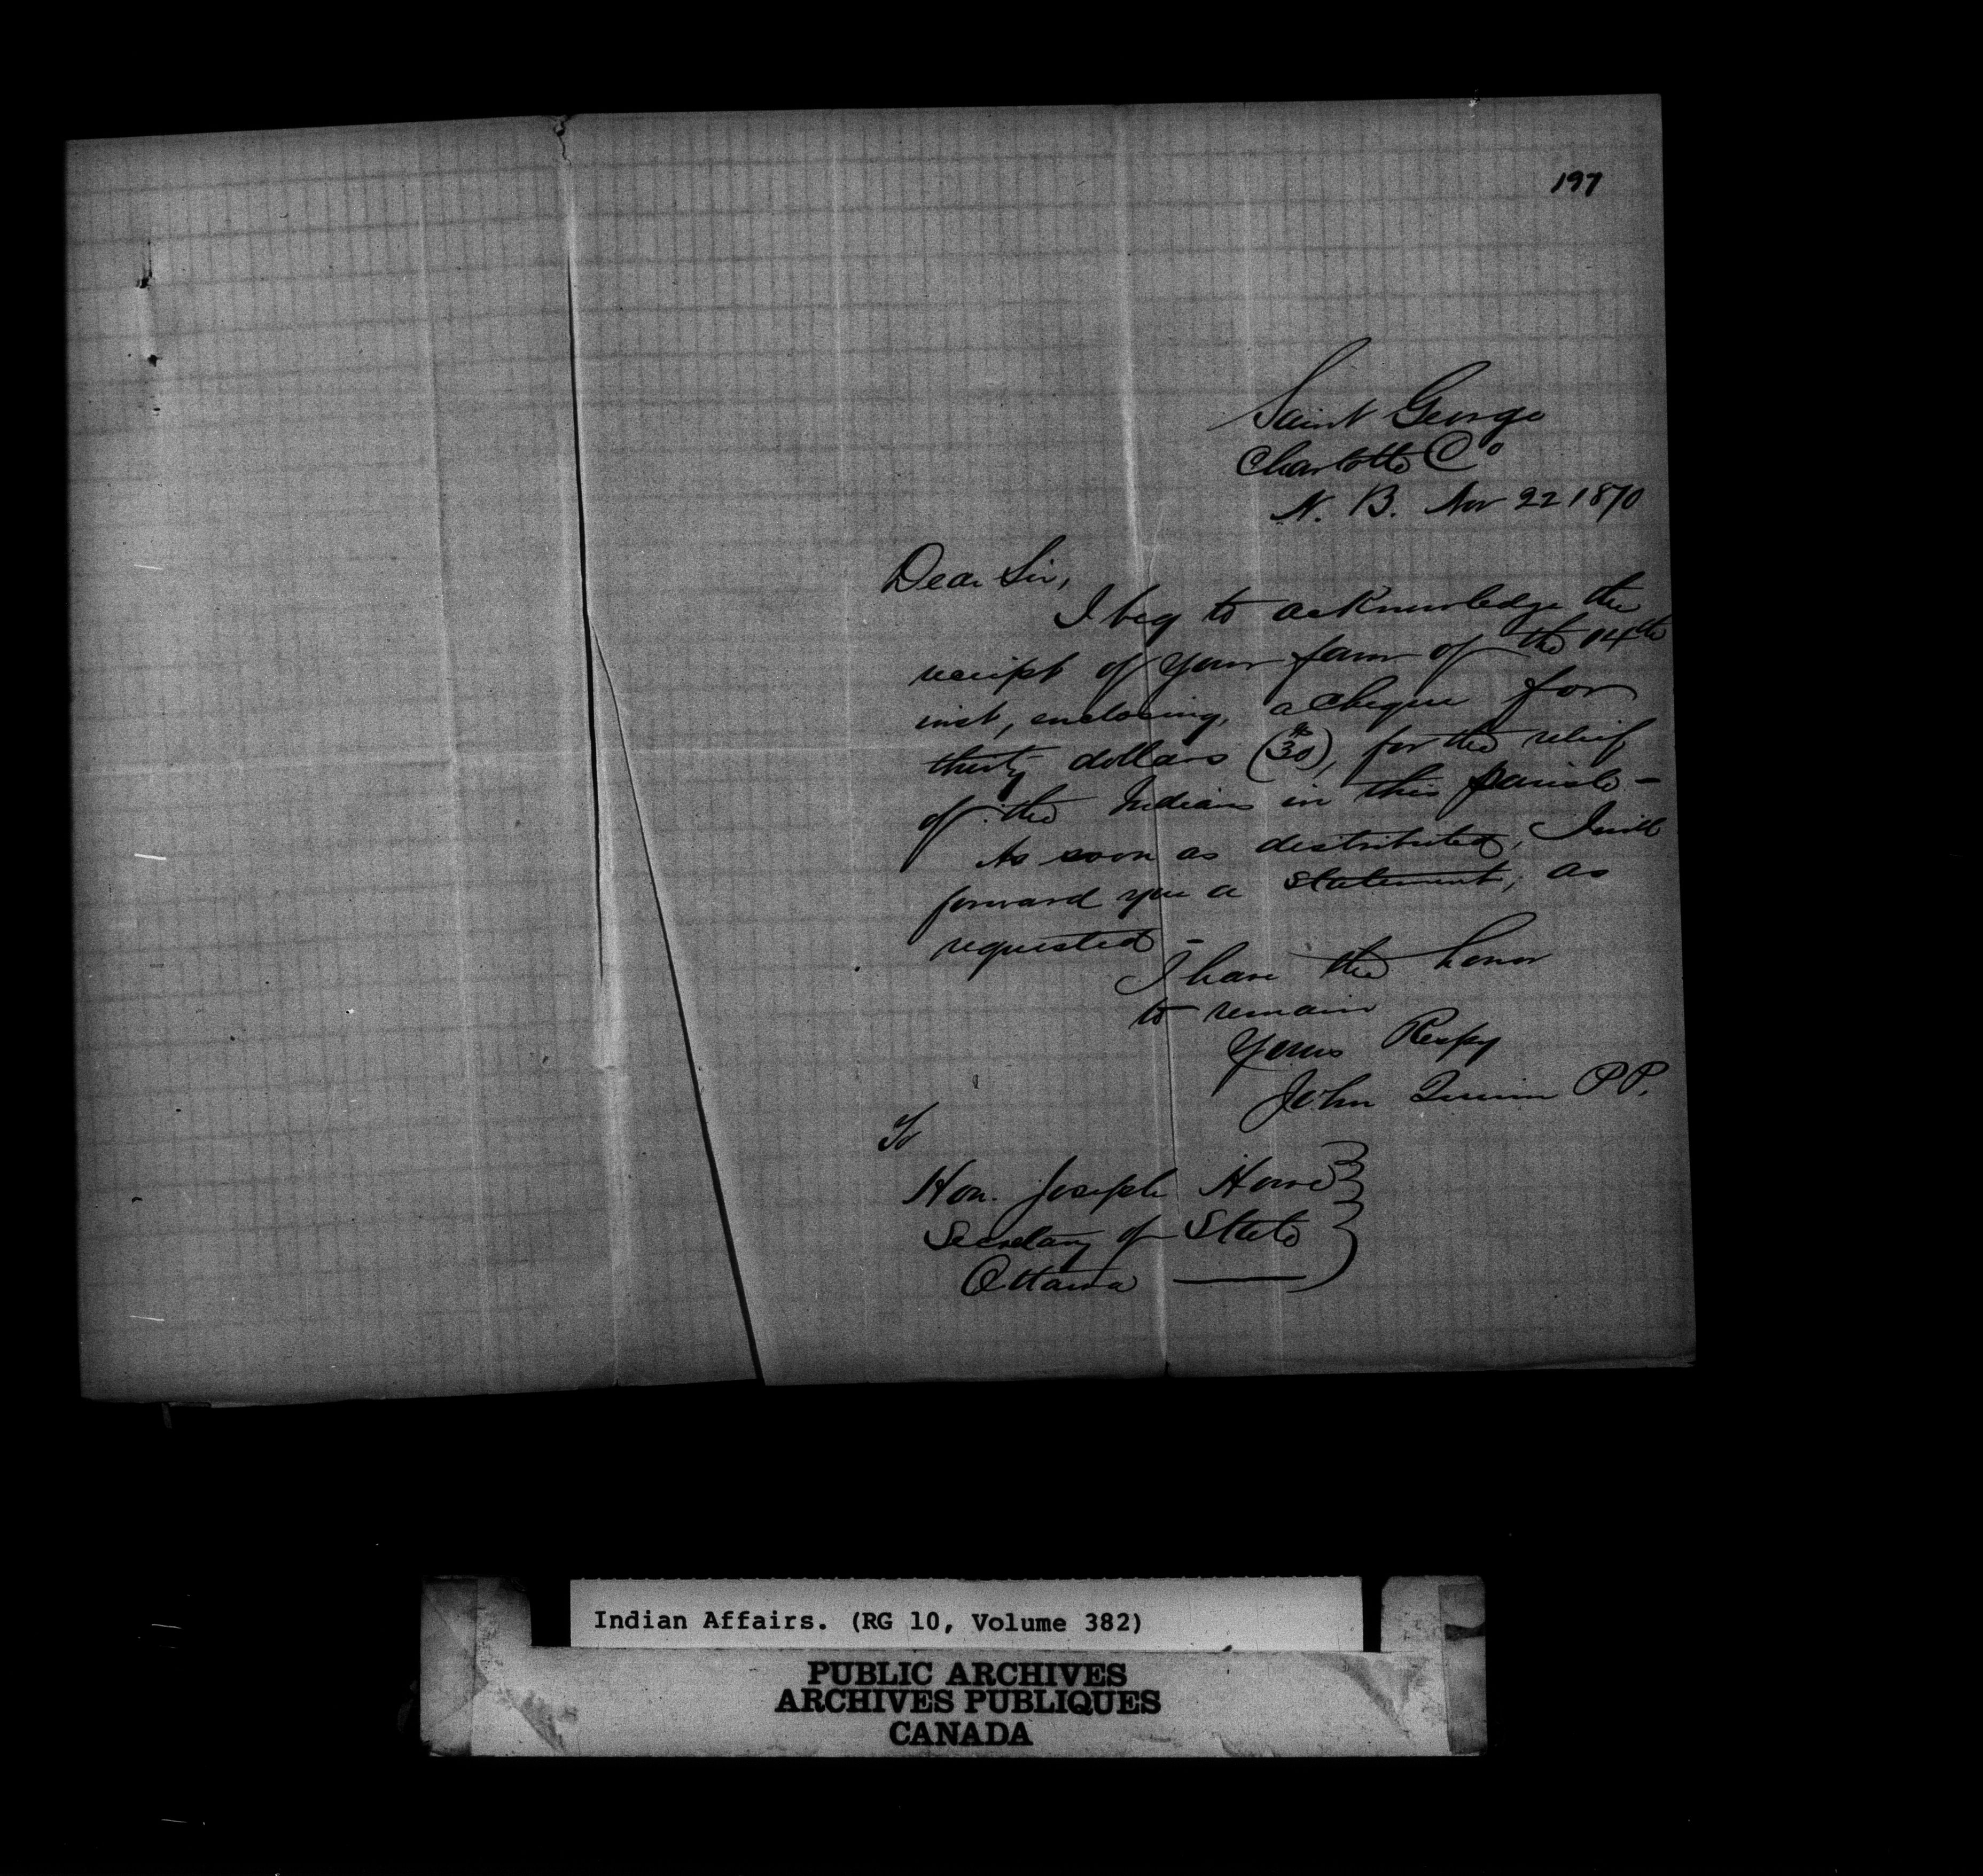 197
Saint George
Charlotte Co
N. B. Nov 22 1870
Dear Sir,
I beg to acknowledge the
receipt of your favor of the 14th
inst, enclosing, a cheque for
thirty dollars ($30), for the relief
of the Indians in this parish -
As soon as distributed, I will
forward you a statement, as
requested -
I have the honor
to remain
Yours Respy
John Quinn P P.
To
Hon. Joseph Howe
Secretary of State
Ottawa
Indian Affairs. (RG 10, Volume 382)
PUBLIC ARCHIVES
ARCHIVES PUBLIQUES
CANADA